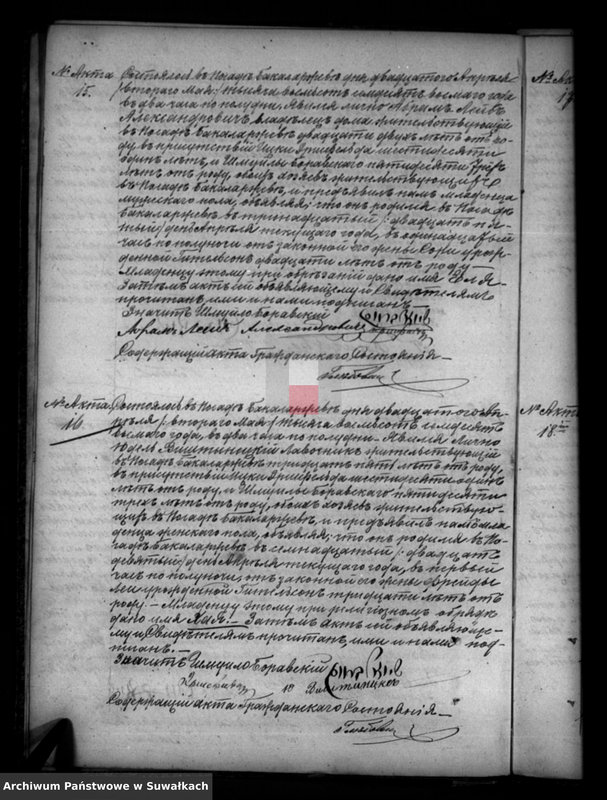 № Акта
15.
Состоялось въ Посадѣ Бакаларжевѣ дня двадцатого Апрѣля
/ втораго Мая / тысяча восемьсотъ семьдесятъ восьмаго года
въ два часа по полудни, Явился лично Абрамъ Лейбъ
Александровичъ владѣлецъ дома жительствующій
въ Посадѣ Бакаларжевѣ двадцати двухъ лѣтъ отъ ро-
ду, въ присутствіи Ицки шестидесяти
одинъ лѣтъ, и Шмуйлы Боравскаго пятидесяти трёхъ
лѣтъ отъ роду, обоихъ жительствующихъ
въ Посадѣ Бакаларжевѣ, и предъявилъ намъ младенца
мужескаго пола, объявляя; что онъ родился въ Посадѣ
Бакаларжевѣ въ тринадцатый /: двадцать пя-
тый / день Апрѣля текущаго года, въ одинадцатый
часъ по полуночи отъ законной его жены Соры урож-
денной Гительсонъ двадцати лѣтъ отъ роду —
Младенцу этому при обрѣзаніи дано имя
Затѣмъ актъ сей объявляющему и Свидѣтелямъ
прочитанъ, ими и нами подписанъ.
Значитъ Шмуйло Боравскій
Абрамъ Лейбъ Александровичъ
Содержащій Акта Гражданскаго Состоянія —
№ Акта
16.
Состоялось въ Посадѣ Бакаларжевѣ дня двадцатого Ап-
рѣля /: втораго Мая / тысяча восемьсотъ семьдесятъ
восьмаго года, въ два часа по полудни. Явился лично
Юдель Виштинецкій Лавочникъ жительствующій
въ Посадѣ Бакаларжевѣ тридцать пять лѣтъ отъ роду,
въ присутствіи Ицки шестидесяти одинъ
лѣтъ отъ роду, и Шмуйлы Боравскаго пятидесяти
трехъ лѣтъ отъ роду, обоихъ жительствую-
щихъ въ Посадѣ Бакаларжевѣ, и предъявилъ намъ мла-
денца женскаго пола, объявляя; что онъ родился въ По-
садѣ Бакаларжевѣ въ семнадцатый /: двадцать
девятый / день Апрѣля текущаго года, въ первый
часъ по полуночи, отъ законной его жены Фрейды
Леи урожденной Гительсонъ тридцати лѣтъ отъ
роду. — Младенцу этому при религіозномъ обрядѣ
дано имя Хая. — Затѣмъ Актъ сей объявляюще-
му и Свидѣтелямъ прочитанъ, ими и нами под-
писанъ. —
Значитъ Шмуйло Боравскій
Ю Виштинецкъ
Содержащій Акта Гражданскаго Состоянія —
№ Ак
17
№ Акта
18
Archiwum Państwowe w Suwałkach